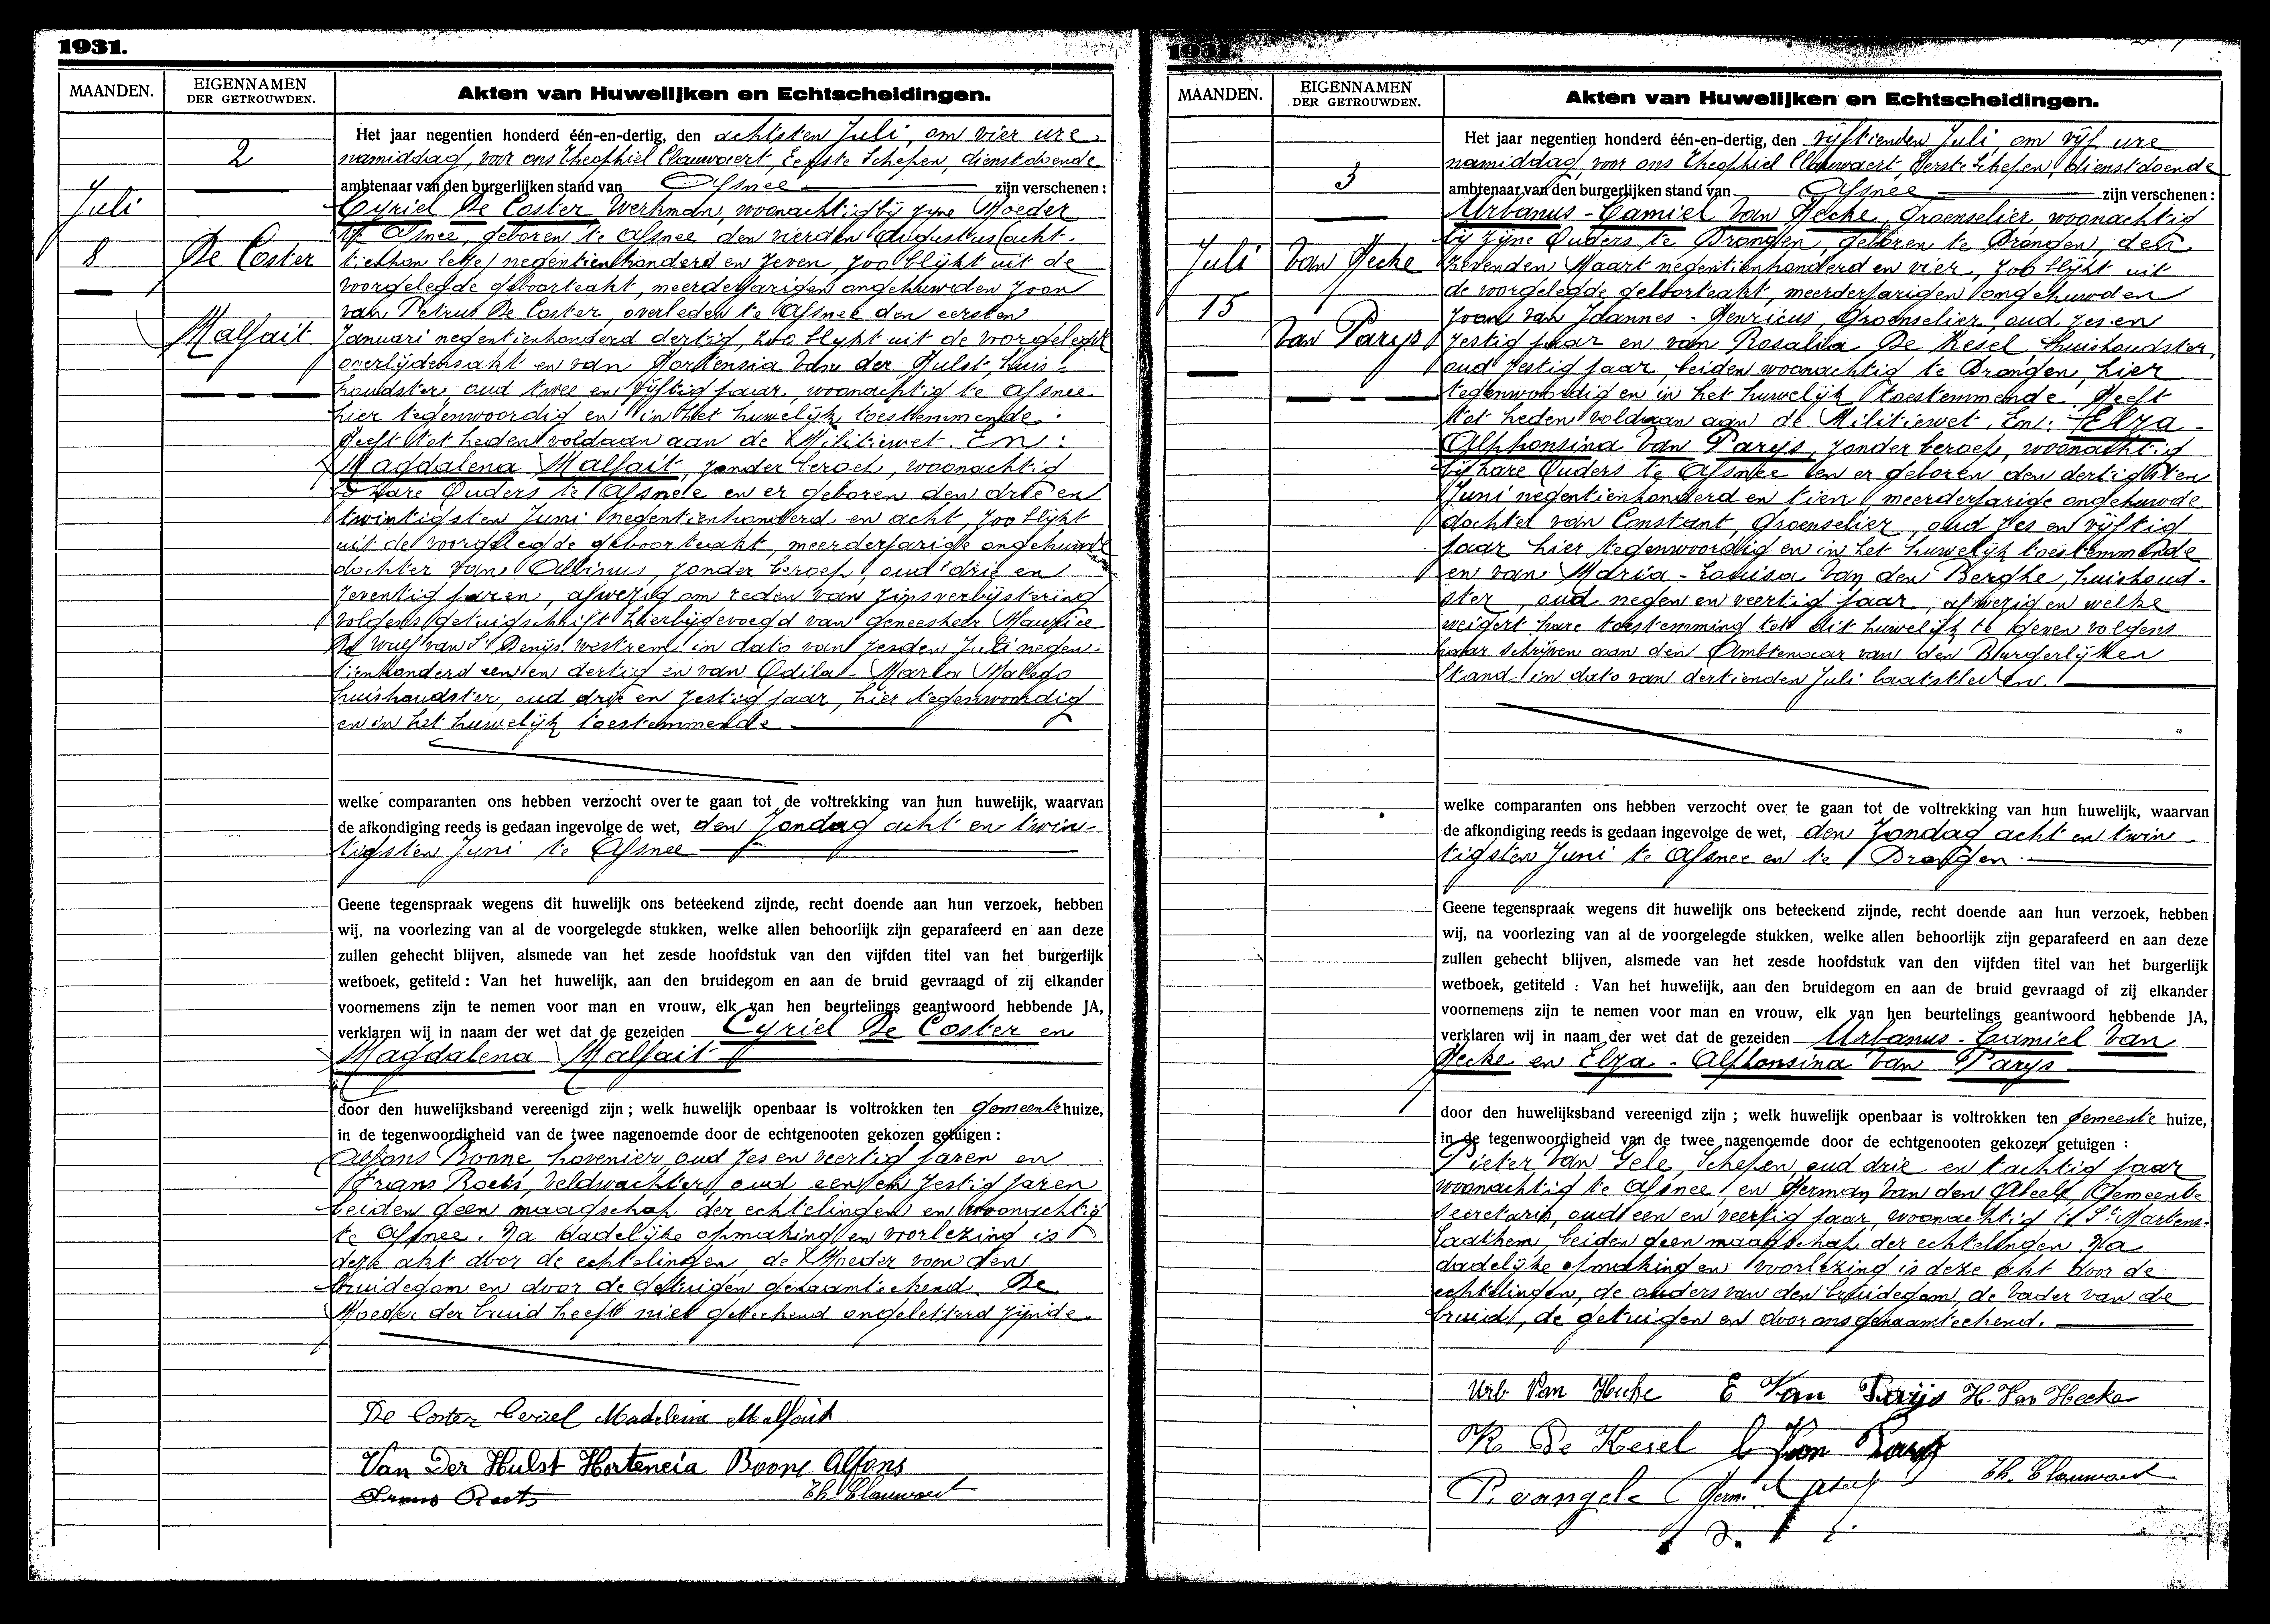 1931.
MAANDEN.
EIGENNAMEN
DER GETROUWDEN.
Akten van Huwelijken en Echtscheidingen.
2
Juli
8
De Coster
Malfait
Het jaar negentien honderd één-en-dertig, den achtsten Juli, om vier ure
namiddag, voor ons Theophiel Clauwaert, Eerste Schepen, dienstdoende
ambtenaar van den burgerlijken stand van Afsnee zijn verschenen :
Cyriel De Coster, Werkman, woonachtig bij zijne Moeder
te Afsnee, geboren te Afsnee den vierden Augustus (acht-
tienhon letje) negentienhonderd en zeven, zoo blijkt uit de
voorgelegde geboorteakt, meerderjarigen ongehuwden zoon
van Petrus De Coster, overleden te Afsnee den eersten
Januari negentienhonderd dertig, zoo blijkt uit de voorgelegde
overlijdensakt en van Hortensia Van der Hulst, huis-
houdster, oud twee en vijftig jaar, woonachtig te Afsnee
hier tegenwoordig en in het huwelijk toestemmende.
Heeft tot heden voldaan aan de Militiewet. En :
Magdalena Malfait, zonder beroep, woonachtig
bij hare Ouders te Afsnee en er geboren den drie en
twintigsten Juni negentienhonderd en acht, zoo blijkt
uit de voorgelegde geboorteakt, meerderjarige ongehuwde
dochter van Albinus, zonder beroep, oud drie en
zeventig jaren, afwezig om reden van zinsverbijstering
volgens getuigschrift hierbijgevoegd van geneesheer Maurice
De Wulf van St Denijs westrem in dato van zesden Juli negen-
tienhonderd een en dertig en van Odila-Maria
huishoudster, oud drie en zestig jaar, hier tegenwoordig
en in het huwelijk toestemmende
welke comparanten ons hebben verzocht over te gaan tot de voltrekking van hun huwelijk, waarvan
de afkondiging reeds is gedaan ingevolge de wet, den Zondag acht en twin-
tigsten Juni te Afsnee
Geene tegenspraak wegens dit huwelijk ons beteekend zijnde, recht doende aan hun verzoek, hebben
wij, na voorlezing van al de voorgelegde stukken, welke allen behoorlijk zijn geparafeerd en aan deze
zullen gehecht blijven, alsmede van het zesde hoofdstuk van den vijfden titel van het burgerlijk
wetboek, getiteld : Van het huwelijk, aan den bruidegom en aan de bruid gevraagd of zij elkander
voornemens zijn te nemen voor man en vrouw, elk van hen beurtelings geantwoord hebbende JA,
verklaren wij in naam der wet dat de gezeiden Cyriel De Coster en
Magdalena Malfait
door den huwelijksband vereenigd zijn ; welk huwelijk openbaar is voltrokken ten Gemeentehuize,
in de tegenwoordigheid van de twee nagenoemde door de echtgenooten gekozen getuigen :
Alfons Boone, hovenier, oud zes en veertig jaren en
Frans Roets, veldwachter, oud een en zestig jaren
beiden geen maagschap der echtelingen en woonachtig
te Afsnee. Na dadelijke opmaking en voorlezing is
deze akt door de echtelingen, de Moeder van den
bruidegom en door de getuigen genaamteekend. De
Moeder der bruid heeft niet geteekend ongeletterd zijnde.
De Coster Ceriel Madeleine Malfait
Van Der Hulst Hortencia Boone Alfons
Frans Roets Th. Clauwaert
1931.
MAANDEN.
EIGENNAMEN
DER GETROUWDEN.
Akten van Huwelijken en Echtscheidingen.
3
Juli
15
Van Hecke
Van Parys
Het jaar negentien honderd één-en-dertig, den vijftienden Juli, om vijf ure
namiddag, voor ons Theophiel Clauwaert, Eerste Schepen, dienstdoende
ambtenaar van den burgerlijken stand van Afsnee zijn verschenen :
Urbanus-Camiel Van Hecke, Groenselier, woonachtig
bij zijne Ouders te Drongen, geboren te Drongen, den
zevenden Maart negentienhonderd en vier, zoo blijkt uit
de voorgelegde geboorteakt, meerderjarigen ongehuwden
zoon van Joannes-Henricus, Groenselier, oud zes en
zestig jaar en van Rosalia De Kesel, huishoudster,
oud zestig jaar, beiden woonachtig te Drongen, hier
tegenwoordig en in het huwelijk toestemmende. Heeft
tot heden voldaan aan de Militiewet. En : Elza-
Alphonsina Van Parys, zonder beroep, woonachtig
bij hare Ouders te Afsnee en er geboren den dertigsten
Juni negentienhonderd en tien, meerderjarige ongehuwde
dochter van Constant, Groenselier, oud zes en vijftig
jaar hier tegenwoordig en in het huwelijk toestemmende
en van Maria-Louisa Van den Berghe, huishoud-
ster, oud negen en veertig jaar, afwezig en welke
weigert hare toestemming tot dit huwelijk te geven volgens
haar schrijven aan den Ambtenaar van den Burgerlijken
Stand in dato van dertienden Juli laatstleden.
welke comparanten ons hebben verzocht over te gaan tot de voltrekking van hun huwelijk, waarvan
de afkondiging reeds is gedaan ingevolge de wet, den Zondag acht en twin-
tigsten Juni te Afsnee en te Drongen.
Geene tegenspraak wegens dit huwelijk ons beteekend zijnde, recht doende aan hun verzoek, hebben
wij, na voorlezing van al de voorgelegde stukken, welke allen behoorlijk zijn geparafeerd en aan deze
zullen gehecht blijven, alsmede van het zesde hoofdstuk van den vijfden titel van het burgerlijk
wetboek, getiteld : Van het huwelijk, aan den bruidegom en aan de bruid gevraagd of zij elkander
voornemens zijn te nemen voor man en vrouw, elk van hen beurtelings geantwoord hebbende JA,
verklaren wij in naam der wet dat de gezeiden Urbanus-Camiel Van
Hecke en Elza-Alphonsina Van Parys
door den huwelijksband vereenigd zijn ; welk huwelijk openbaar is voltrokken ten Gemeente huize,
in de tegenwoordigheid van de twee nagenoemde door de echtgenooten gekozen getuigen :
Pieter Van Gele, Schepen, oud drie en tachtig jaar
woonachtig te Afsnee en Herman Van den Abeele, Gemeente
Secretaris, oud een en veertig jaar, woonachtig te St Martens-
Laathem, beiden geen maagschap der echtelingen. Na
dadelijke opmaking en voorlezing is deze akt door de
echtelingen, de ouders van den bruidegom, de vader van de
bruid, de getuigen en door ons genaamteekend.
Urb. Van Hecke E Van Parijs H. Van Hecke
R De Kesel C Van Parys
P. vangele Th. Clauwaert